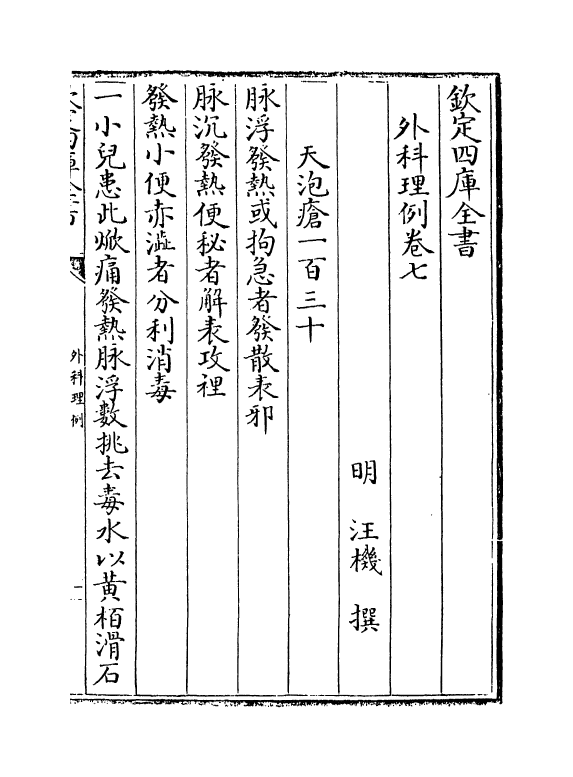 欽定四庫全書
外科理例卷七
明　汪機　撰
天泡瘡一百三十
脉浮發熱或拘急者發散表邪
脉沉發熱便秘者解表攻裡
發熱小便赤澁者分利消毒
一小兒患此焮痛發熱脉浮數挑去毒水以黄栢滑石
外科理例